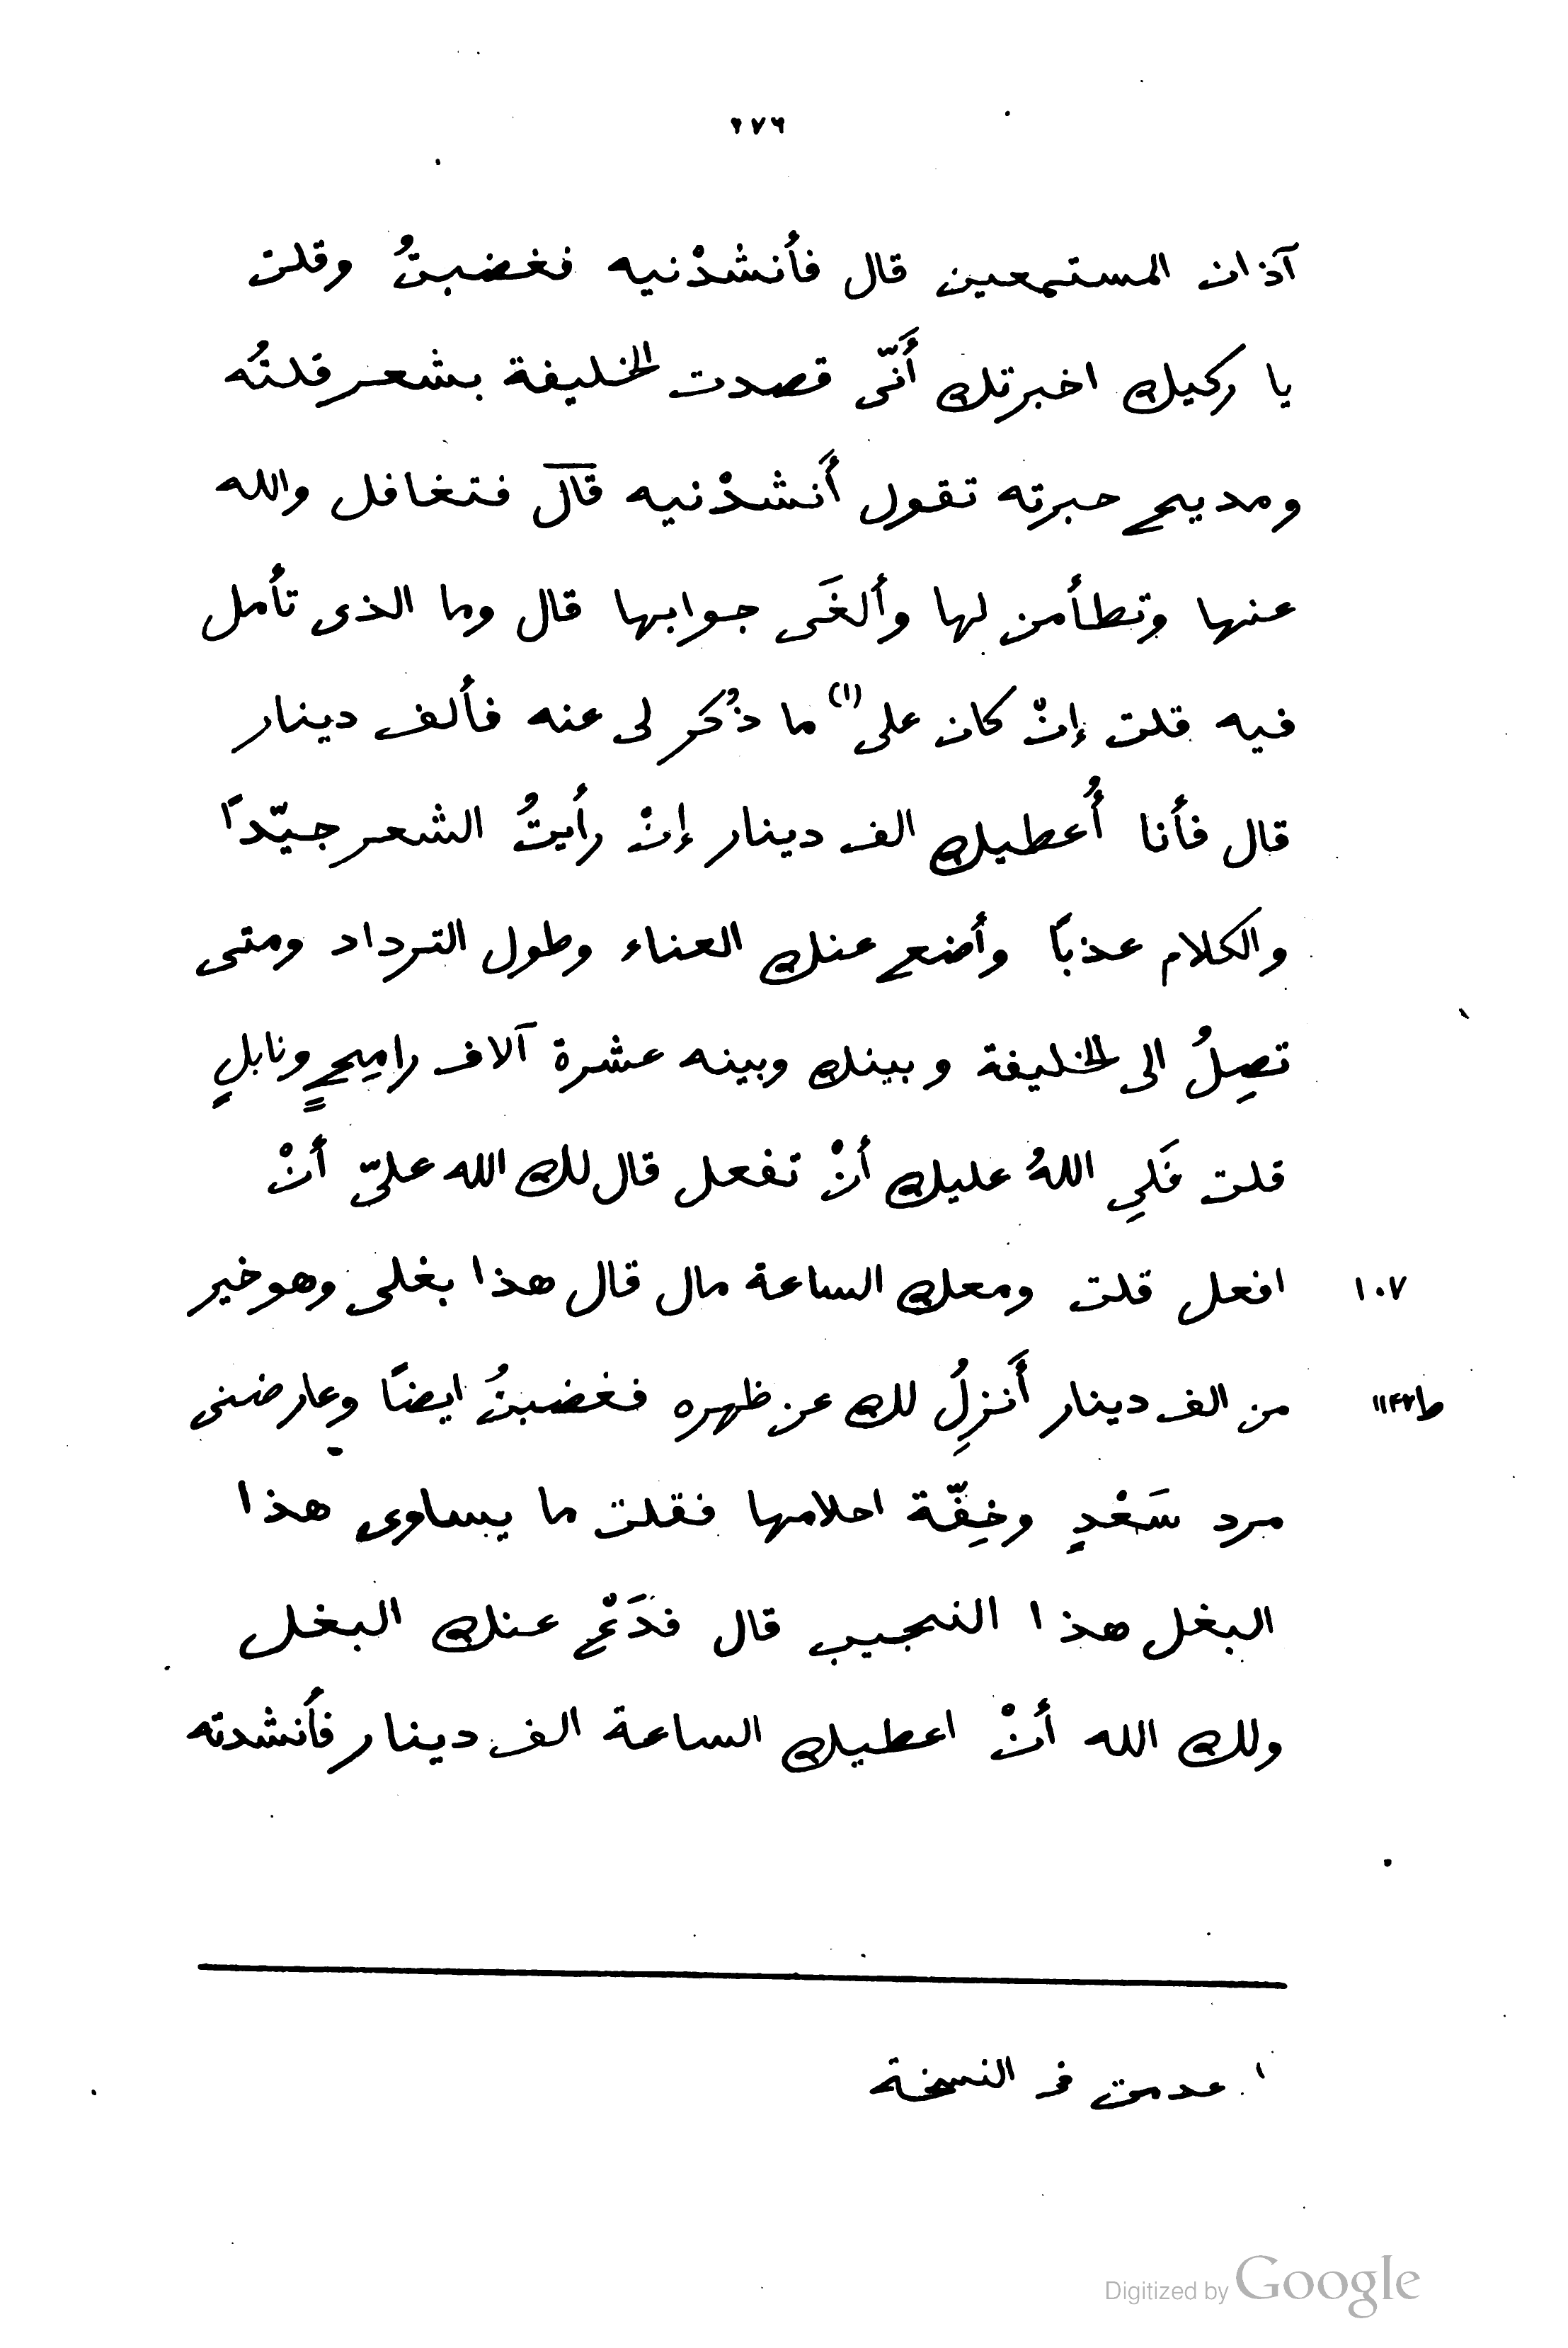 ٢٧٦
آذان المستمعين قال فأنشدْنيه فغضبتُ وقلت
يا ركيك اخبرتك أَنّى قصدت الخليفة بشعر قلتُه
ومديح حبرته تقول أَنشدْنيه قال فتغافل والله
عنها وتطأمن لها وألغَى جوابها قال وما الذى تأمل
فيه قلت إنْ كان على(١) ما ذُكر لى عنه فألف دينار
قال فأنا أُعطيك الف دينار إنْ رأيتُ الشعر جيّدًا
والكلام عذبًا وأضع عنك العناء وطول الترداد ومتى
تصِلُ الى الخليفة وبينك وبينه عشرة آلاف رامِحٍ ونابلٍ
قلت فَلِي اللهُ عليك أنْ تفعل قال لك الله علىّ أنْ
١٠٧ افعل قلت ومعك الساعة مال قال هذا بغلى وهو خير
ط١١٤٣ من الف دينار أَنزِلُ لك عن ظهره فغضبتُ ايضًا وعارضنى
مرد سَعْدٍ وخِفّة احلامها فقلت ما يساوى هذا
البغل هذا النجيب قال فدَعْ عنك البغل
ولك الله أنْ اعطيك الساعة الف دينار فأنشدته
١ عدمت فى النسخة
Digitized by Google